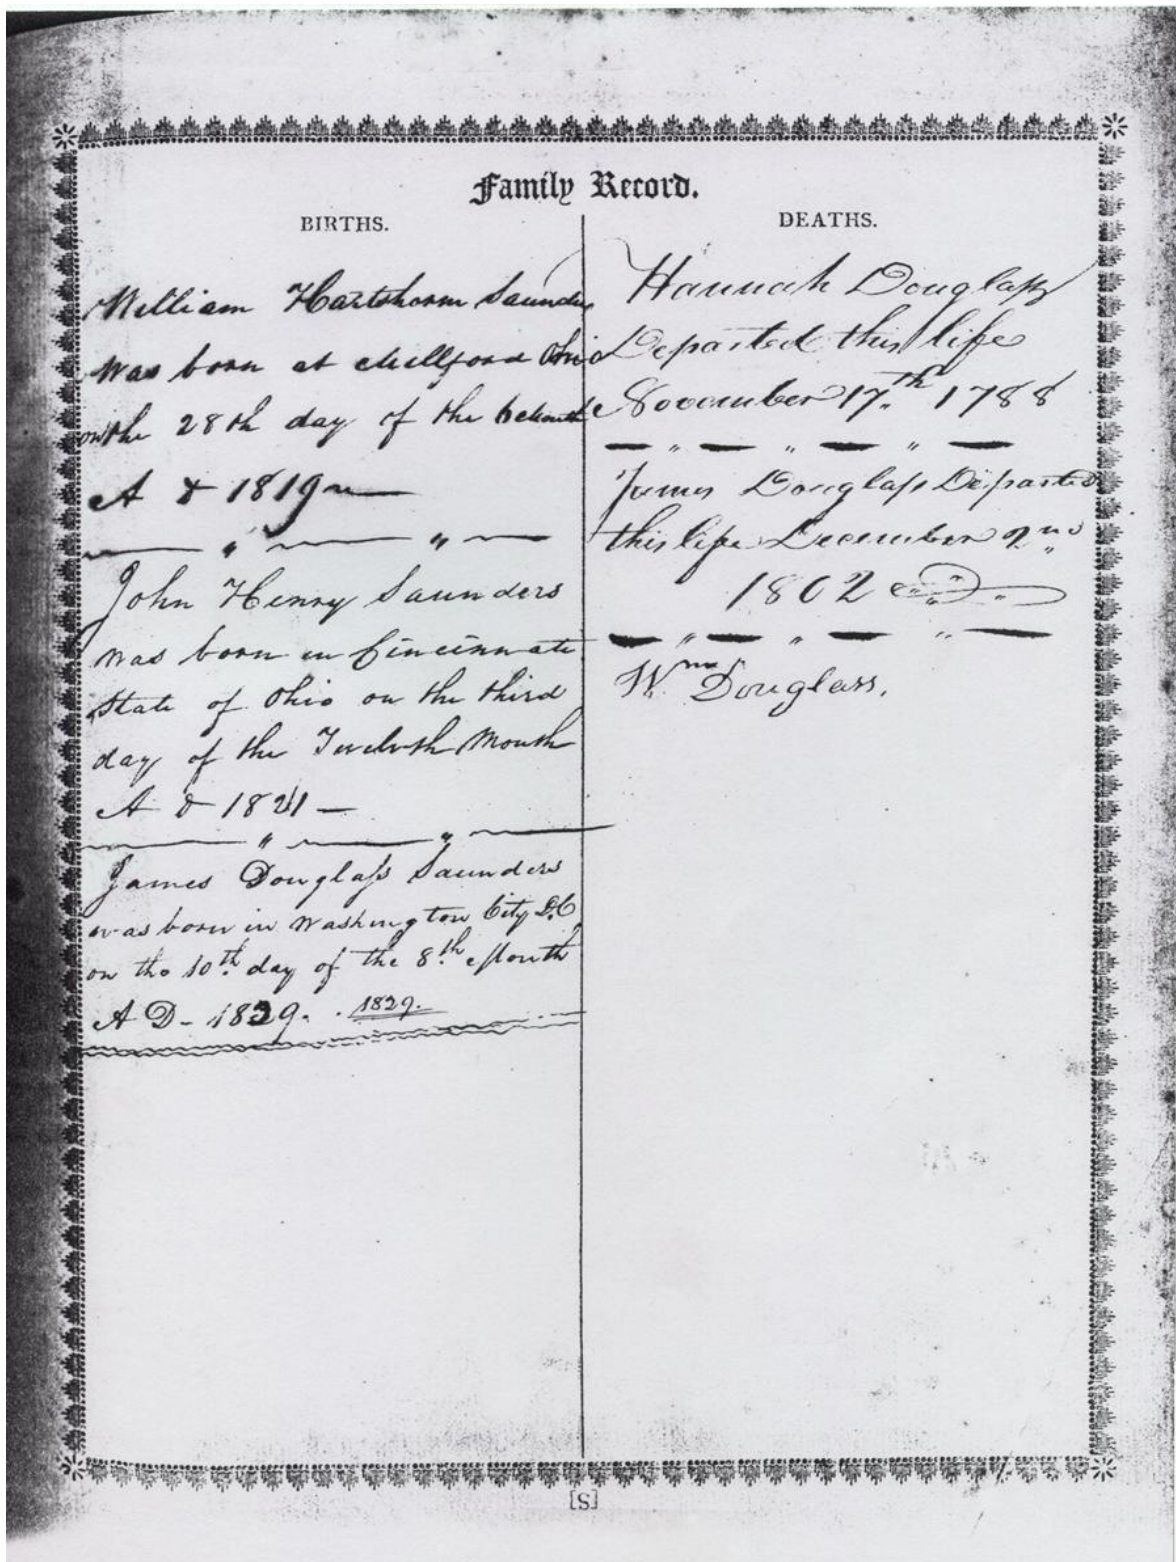 Family Record.
BIRTHS.
William Hartshorn Saunders
was born at Millford Ohio
on the 28th day of the 6 Month
A D 1819
John Henry Saunders
was born in Cincinnate
State of Ohio on the third
day of the Twelvth Month
A D 1821 —
James Douglass Saunders
was born in Washington City D.C
on the 10th day of the 8th Month
A D - 1829. . 1829.
DEATHS.
Hannah Douglass
Departed this life
November 17th 1788
James Douglass Departed
this life December 2nd
1802
Wm Douglass.
[S]